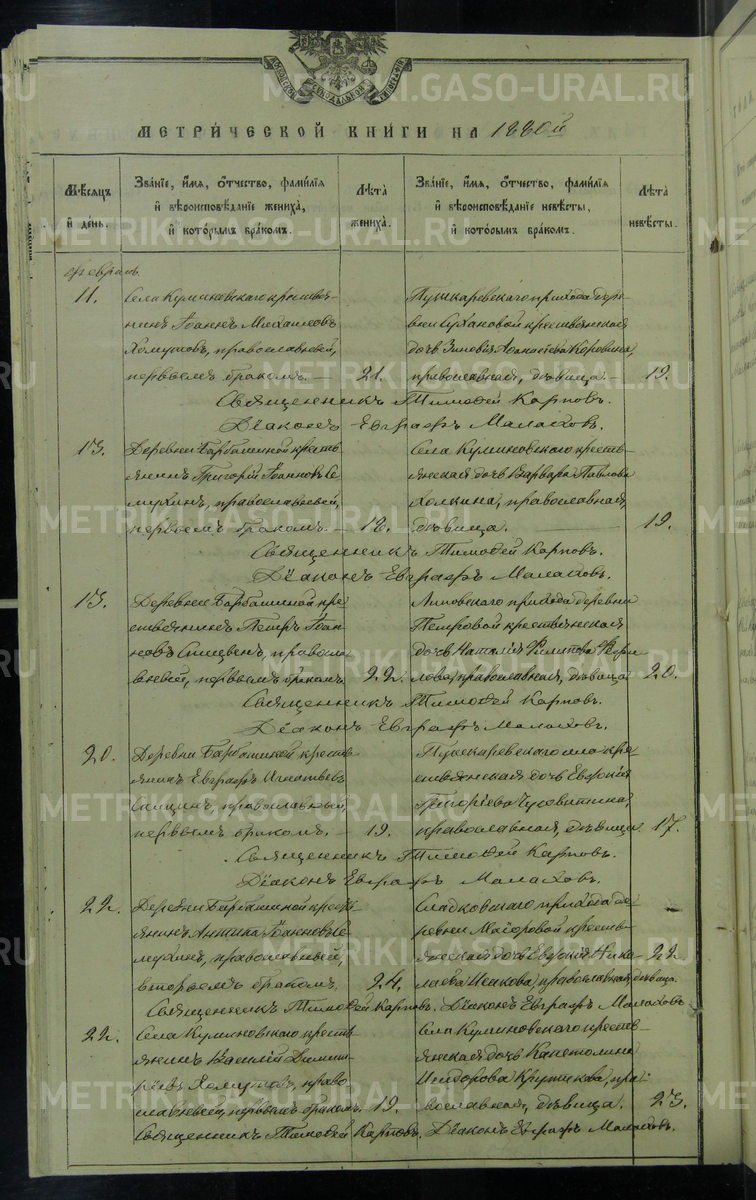 МЕТРИ́ЧЕСКОЙ КНИ́ГИ НА 1880й
Мѣ́сяцъ и́ де́нь.
Зва́ніе, и҆́мя, ѻ҆́тчество, фами́лія и҆ вѣроисповѣ́даніе жениха̀, и҆ кото́рымъ бра́комъ.
Лѣ́та жениха̀.
Зва́ніе, и҆́мя, ѻ҆́тчество, фами́лія и҆ вѣроисповѣ́даніе невѣ́сты, и҆ кото́рымъ бра́комъ.
Лѣ́та невѣ́сты.
Февраль
11.
Села Куминовскаго крестья-
нинъ Іоаннъ Михаиловъ
Хомутовъ, православный,
первымъ бракомъ. — 21.
Пушкаревскаго прихода дере-
вни Сухановой крестьянская
дочь Зиновія Коровина,
православная, дѣвица — 19.
Священникъ Тимоѳей Карповъ.
Діаконъ Евграфъ Малаховъ.
13.
Деревни Барбашиной кресть-
янинъ Григорій Іоанновъ Се-
мухинъ, православный,
первымъ бракомъ. — 18.
Села Куминовскаго кресть-
янская дочь Варвара Павлова
Холкина, православная,
дѣвица. 19.
Священникъ Тимоѳей Карповъ.
Діаконъ Евграфъ Малаховъ.
13.
Деревни Барбашиной кре-
стьянинъ Петръ Іоан-
новъ Спицынъ, правосла-
вный, первымъ бракомъ 22.
Липовскаго прихода деревни
Петровой крестьянская
дочь Наталія Филипова
православная, дѣвица 20.
Священникъ Тимоѳей Карповъ.
Діаконъ Евграфъ Малаховъ.
20.
Деревни Барбашиной кресть-
янинъ Евграфъ Игнатьевъ
Спицинъ, православный,
первымъ бракомъ. — 19.
Пушкаревскаго села кре-
стьянская дочь Евдокія
Григорьева Чусовитина,
православная, дѣвица 17.
Священникъ Тимоѳей Карповъ.
Діаконъ Евграфъ Малаховъ.
22.
Деревни Барбашиной кресть-
янинъ Антипа Іоанновъ Се-
мухинъ, православный,
вторымъ бракомъ. 24.
Сладковскаго прихода де-
ревни Маіоровой кресть-
янская дочь Евдокія Нико- 22
лаева православная, дѣвица.
Священникъ Тимоѳей Карповъ. Діаконъ Евграфъ Малаховъ
22.
Села Куминовскаго кресть-
янинъ Василій Димит-
ріевъ Хомутовъ, право-
славный, первымъ бракомъ. 19.
Села Куминовскаго кресть-
янская дочь Капетолина
Исидорова Крутикова, пра-
вославная, дѣвица. 23.
Священникъ Тимоѳей Карповъ. Діаконъ Евграфъ Малаховъ.
METRIKI.GASO-URAL.RU